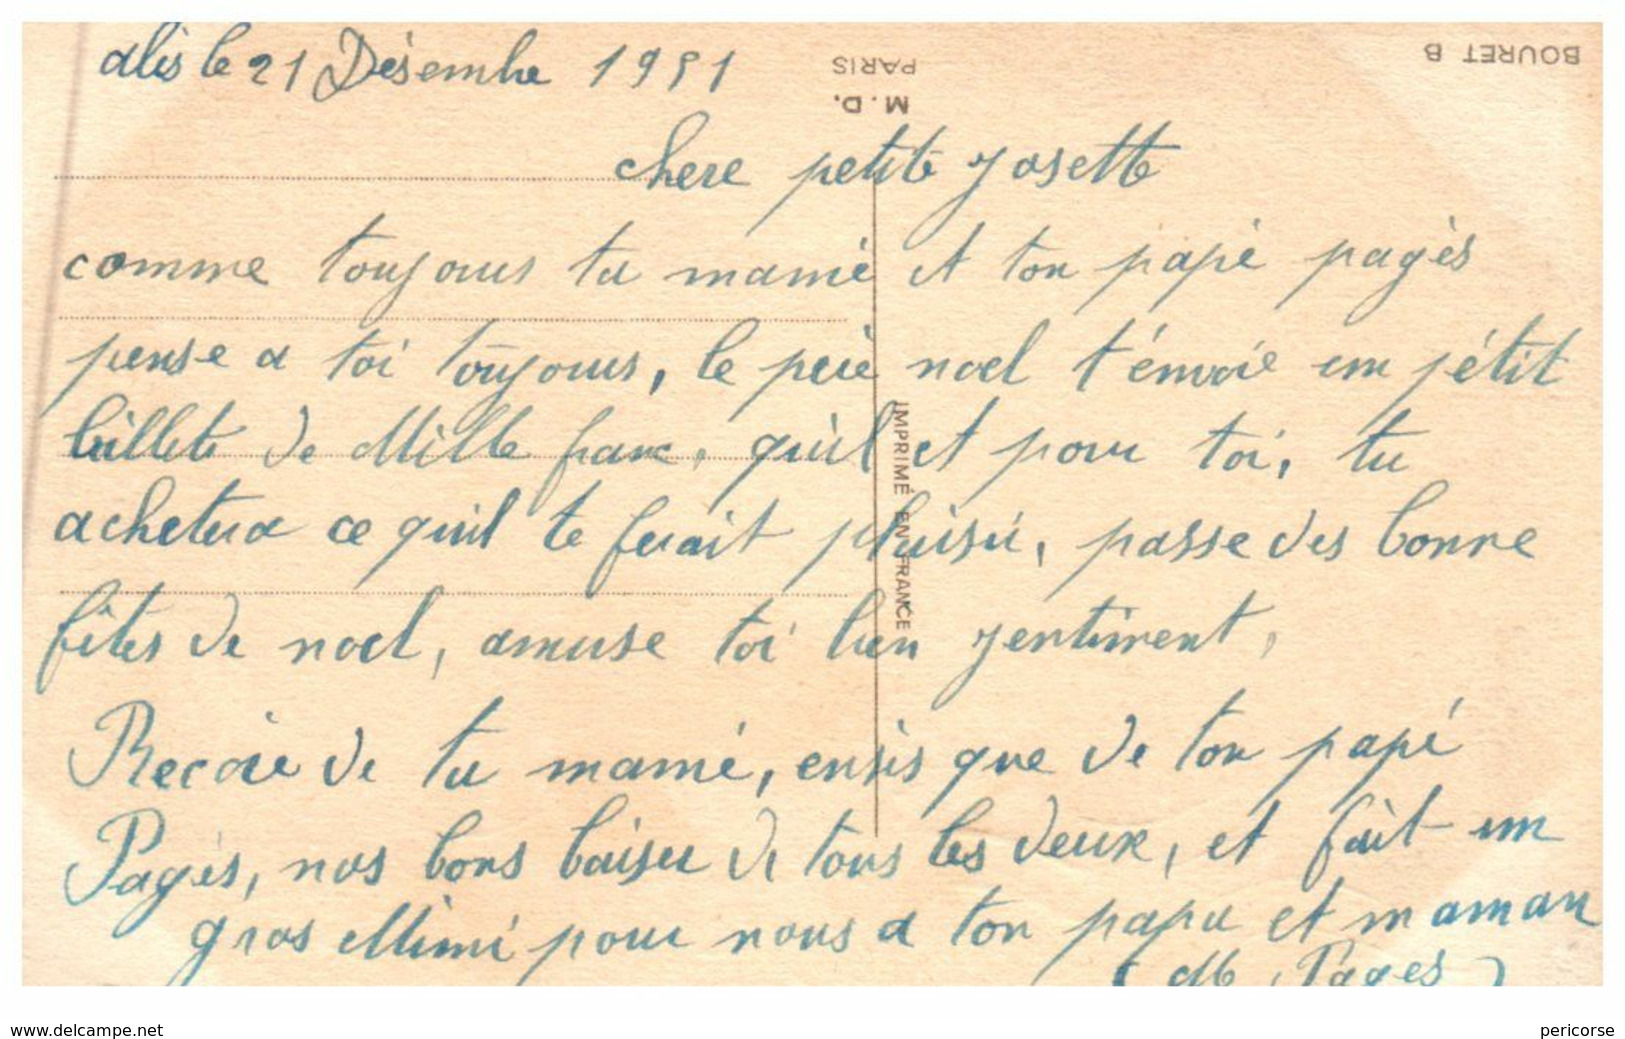 alès le 21 Désembre 1951
BOURET B
M. D.
PARIS
chere petite josette
comme toujours ta mamé et ton papé pagès
pense a toi toujours, le pére noel t'énvoie um pétit
billets de Mille franc, qu'il et pour toi, tu
achetera ce quil te ferait plaisir, passe des bonne
fêtes de noel, amuse toi bien jentiment,
Recoie de ta mamé, ensis que de ton papé
Pagès, nos bons baiser de tous les deux, et fait um
gros Mimi pour nous a ton papa et maman
( M Pages )
IMPRIMÉ EN FRANCE
www.delcampe.net
pericorse